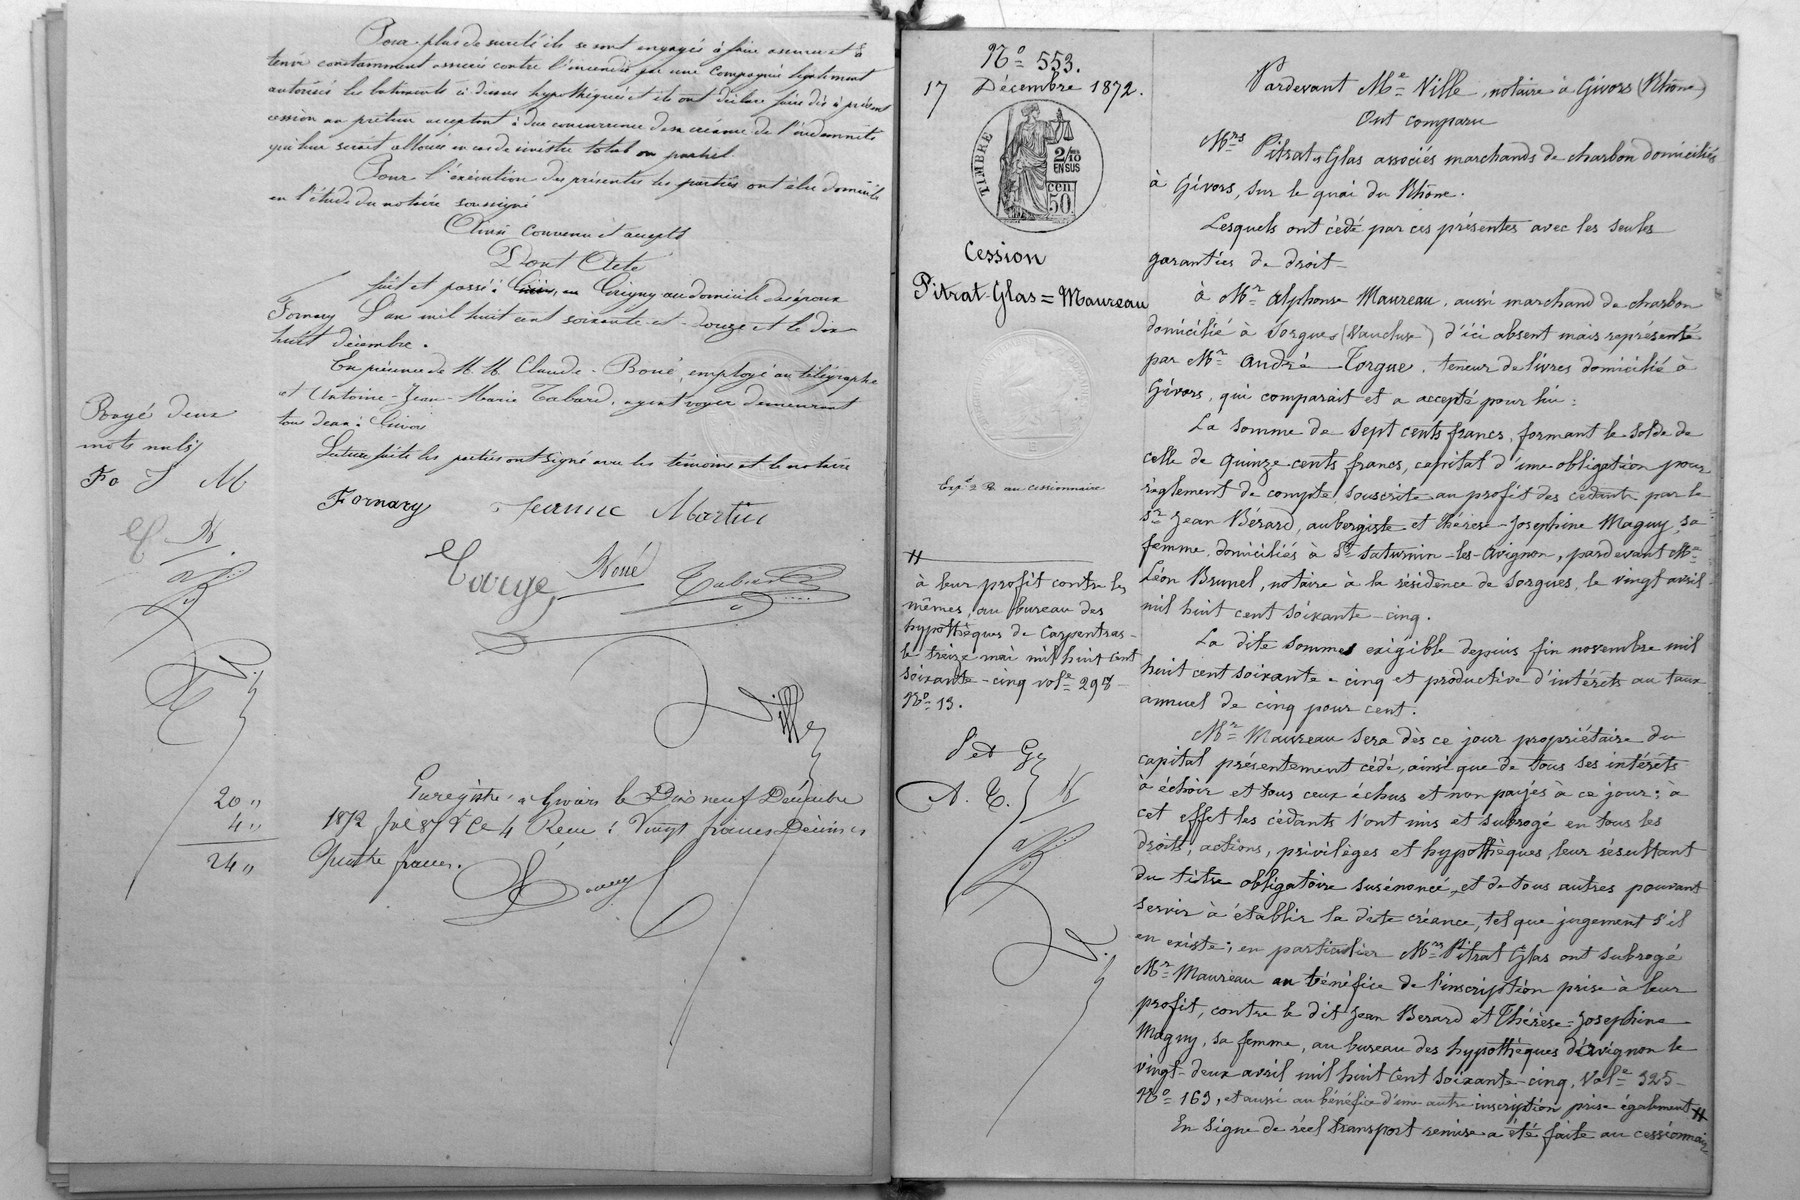 Pour plus de sureté ils se sont engagés à faire assurer et à
tenir constamment assurés contre l'incendie par une Compagnie légalement
autorisée les batiments ci dessus hypothéqués et ils ont déclaré faire dès à présent
cession au prêteur acceptant à due concurrence de sa créance de l'indemnité
qui leur serait allouée en cas de sinistre total ou partiel.
Pour l'exécution des présentes les parties ont élu domicile
en l'étude du notaire soussigné
Ainsi convenu et accepté
Dont Acte
fait et passé à Grigny au domicile des époux
Fornary L'an mil huit cent soixante et douze et le dix
huit décembre.
En présence de M.M. Claude Roué, employé au télégraphe
et Antoine-Jean-Marie Tabard, agent voyer demeurant
tous deux à Givors
Lecture faite les parties ont signé avec les témoins et le notaire
Rayé deux
mots nuls
Fo J M
Fornary Jeanne Martin
Targe Roué Tabard
Ville
Enregistré à Givors le Dix neuf Décembre
1872 fol 87 V Ce 4 Reçu : Vingt francs Décimes
Quatre francs.
20 "
4 "
24 "
No 553.
17 Décembre 1872.
TIMBRE
2/10 EN SUS
50 cen
Cession
Pitrat-Glas = Maureau
Expn 2 R. au cessionnaire
#
à leur profit contre les
mêmes, au bureau des
hypothèques de Carpentras
le treize mai mil huit cent
soixante-cinq vole 298
No 13.
P et G
A. T. R
Pardevant Me Ville, notaire à Givors (Rhône)
Ont comparu
Mrs Pitrat & Glas associés marchands de charbon domiciliés
à Givors, sur le quai du Rhône.
Lesquels ont cédé par ces présentes avec les seules
garanties de droit
à Mr Alphonse Maureau, aussi marchand de charbon
domicilié à Sorgues (Vaucluse) d'ici absent mais représenté
par Mr André Torgue, teneur de livres domicilié à
Givors, qui comparait et a accepté pour lui :
La somme de Sept cents francs, formant le solde de
celle de Quinze cents francs, capital d'une obligation pour
règlement de compte, souscrite au profit des cédants par le
Sr Jean Bérard, aubergiste et Thérèse-Josephine Maguy, sa
femme, domiciliés à St Saturnin-les-Avignon, pardevant Me
Léon Brunel, notaire à la résidence de Sorgues, le vingt avril
mil huit cent soixante-cinq.
La dite sommes exigible depuis fin novembre mil
huit cent soixante-cinq et productive d'intérêts au taux
annuel de cinq pour cent.
Mr Maureau sera dès ce jour propriétaire du
capital présentement cédé, ainsi que de tous ses intérêts
à échoir et tous ceux échus et non payés à ce jour ; à
cet effet les cédants l'ont mis et subrogé en tous les
droits, actions, privilèges et hypothèques leur résultant
du titre obligatoire susénoncé, et de tous autres pouvant
servir à établir la dite créance, tel que jugement s'il
en existe ; en particulier Mrs Pitrat Glas ont subrogé
Mr Maureau au bénéfice de l'inscription prise à leur
profit, contre le dit Jean Berard et Thérèse-Josephine
Maguy, sa femme, au bureau des hypothèques d'Avignon le
vingt-deux avril mil huit cent soixante-cinq, Vole 325
No 163, et aussi au bénéfice d'une autre inscription prise également #
En signe de réel transport remise a été faite au cessionnaire